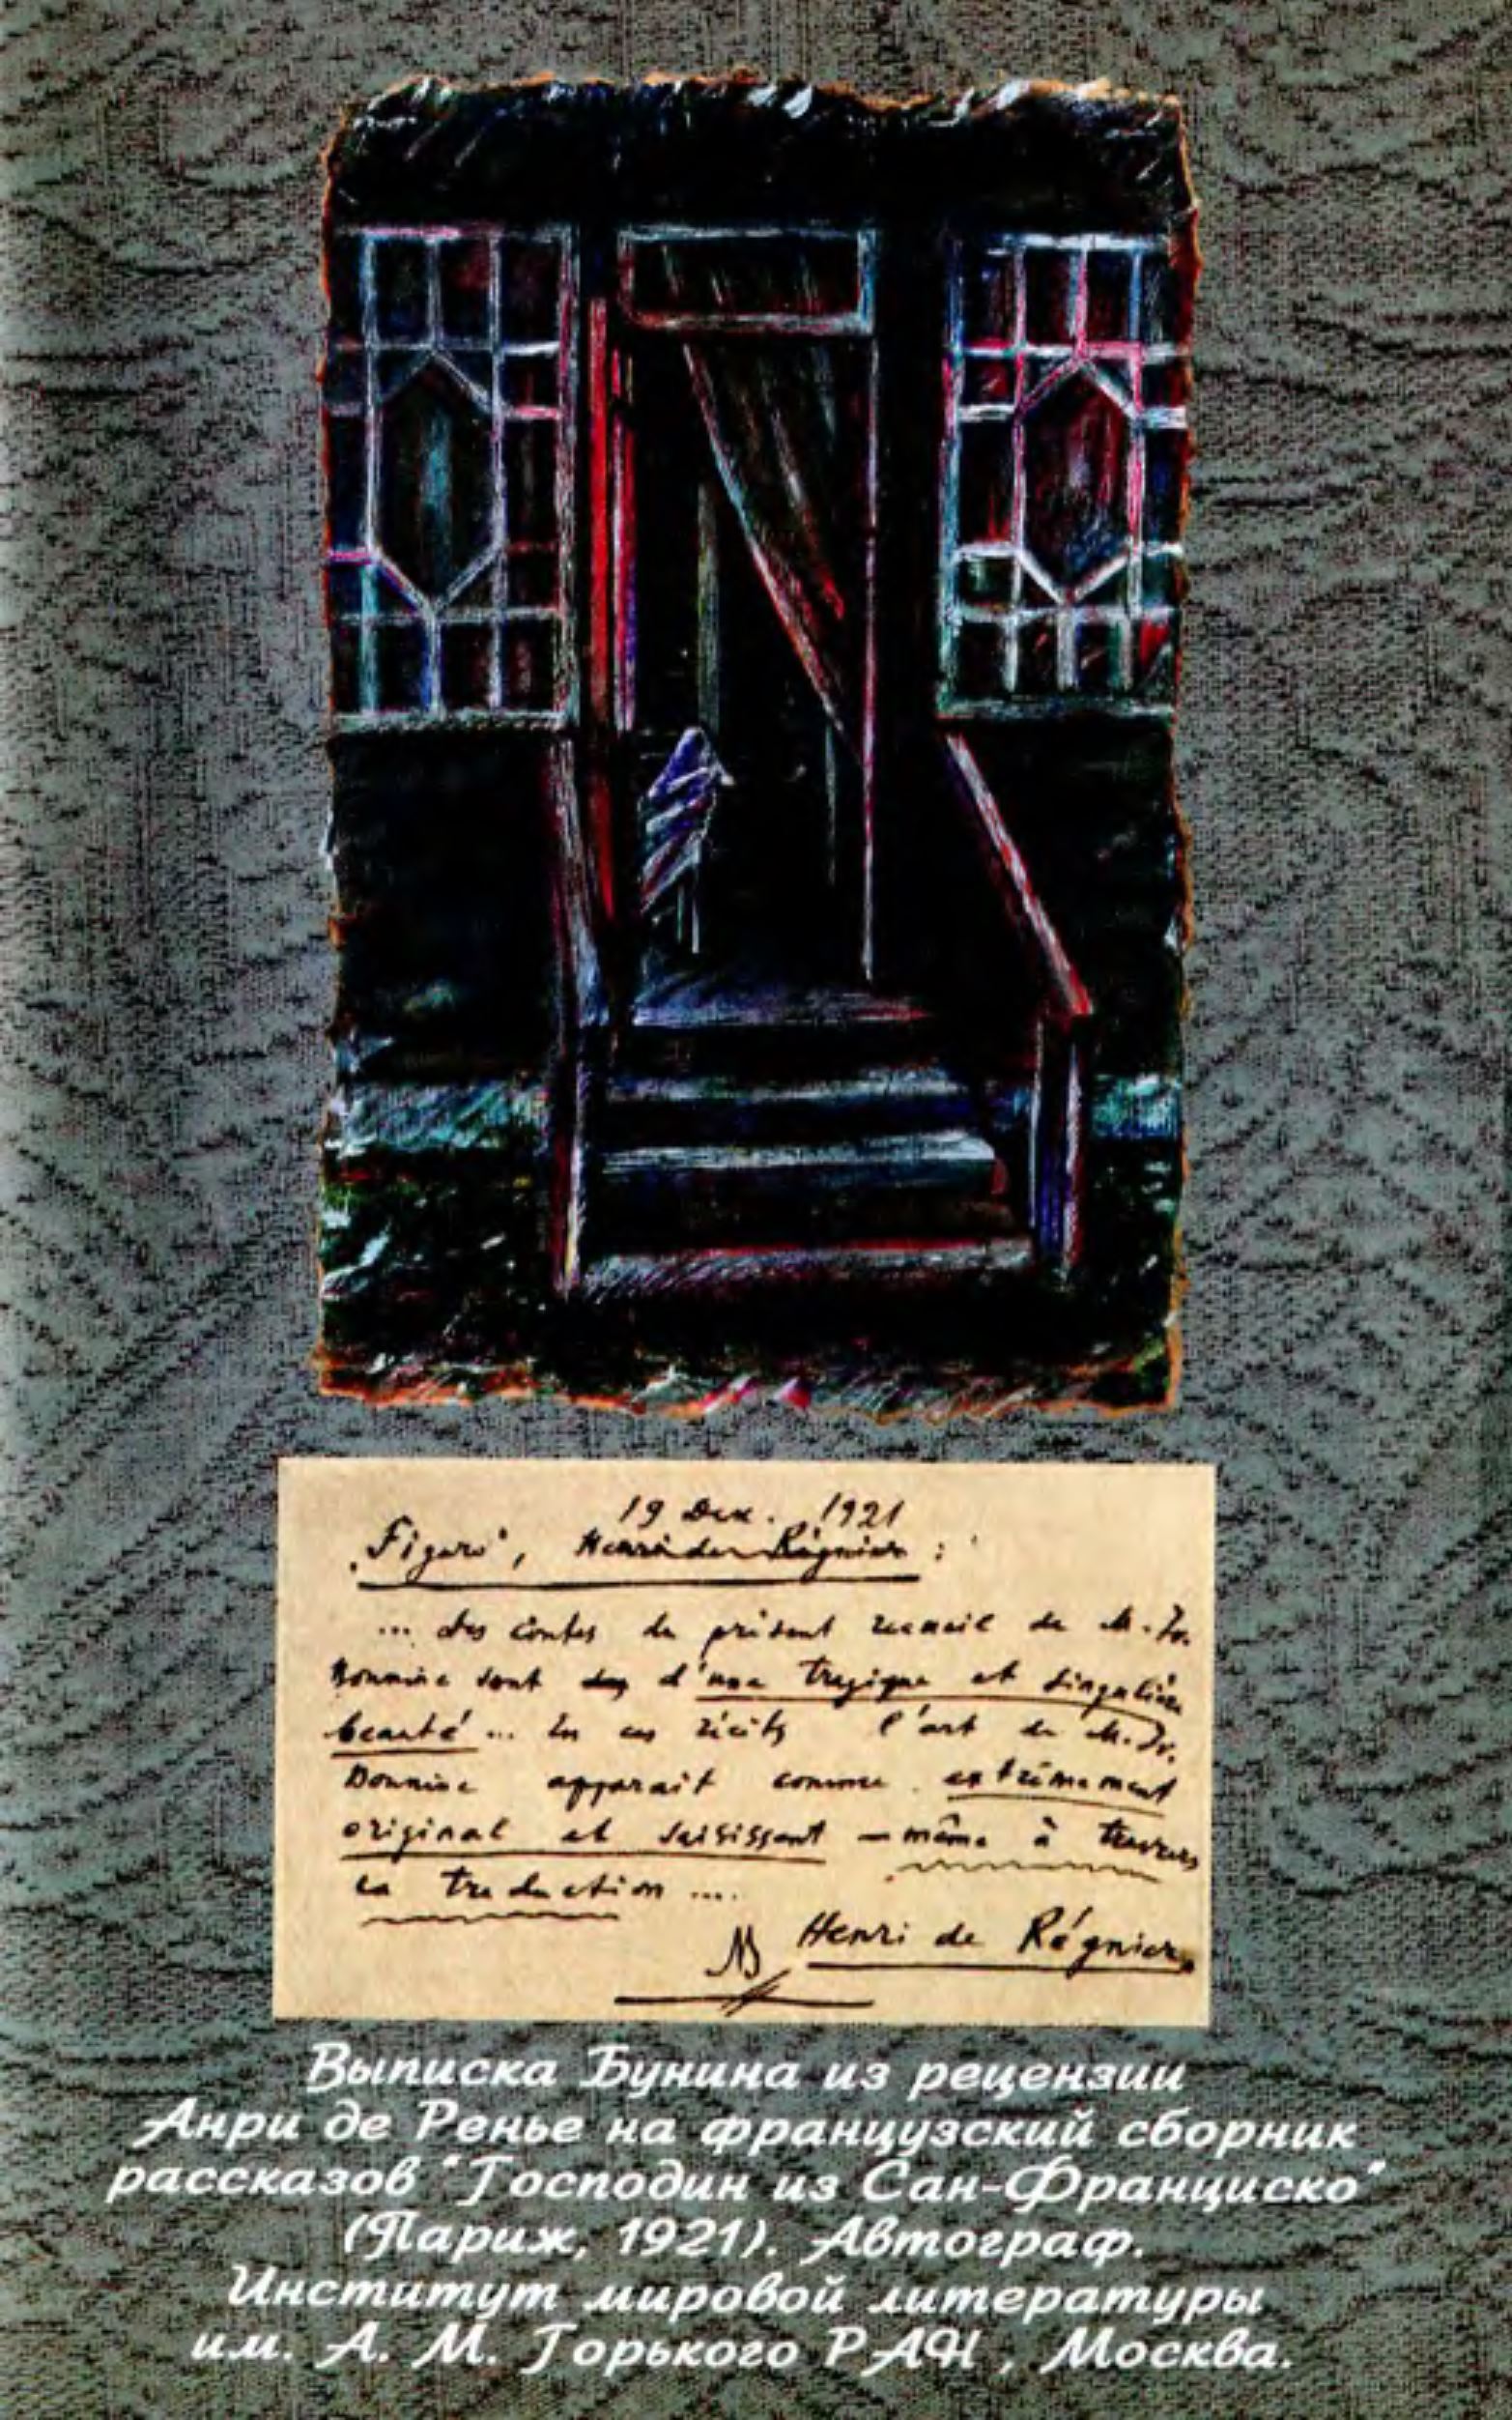 19 Дек. 1921
„Figaro", Henri de Régnier :
... des contes du présent recueil de M. Iv.
Bounine sont d'une tragique et singulière
beauté ... En ces récits l'art de M. Iv.
Bounine apparait comme extrêmement
original et saisissant — même à travers
la traduction ....
Henri de Régnier.
Выписка Бунина из рецензии
Анри де Ренье на французский сборник
рассказов "Господин из Сан-Франциско"
(Париж, 1921). Автограф.
Институт мировой литературы
им. А. М. Горького РАН, Москва.